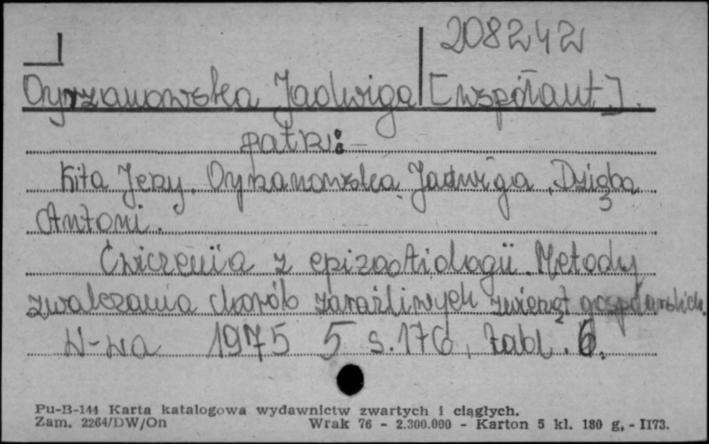 208242
Dyrzanowska Jadwiga [współaut].
patrz:
Kita Jerzy. Dyrzanowska Jadwiga, Dzięba
Antoni.
Ćwiczenia z epizootiologii. Metody
zwalczania chorób zaraźliwych zwierząt gospodarskich.
W-wa 1975 5 s. 176, tabl. 6.
Pu-B-144 Karta katalogowa wydawnictw zwartych i ciągłych.
Zam. 2264/DW/On Wrak 76 - 2.300.000 - Karton 5 kl. 180 g, - II73.